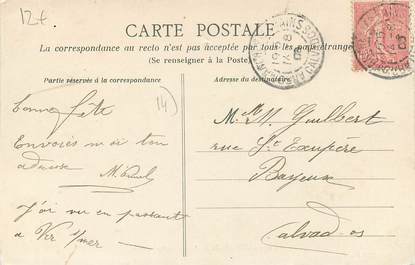 12+
CARTE POSTALE
La correspondance au recto n'est pas acceptée par tous les pays étrangers
(Se renseigner à la Poste)
Partie réservée à la correspondance
Adresse du destinataire
14)
Bonne fête
Envoies moi ton
adresse
J'ai vu en passant
à Ver s/mer
M. Guilbert
rue St Exupère
Bayeux
Calvados